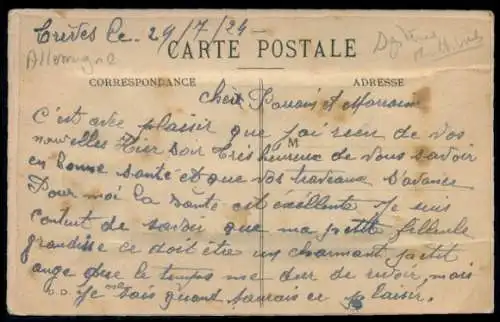 Trêves le 29/7/24
Allemagne
CARTE POSTALE
CORRESPONDANCE ADRESSE
cher Parrain et Marraine
C'est avec plaisir que j'ai recu de vos
M
nouvelles Hier soir très heureux de vous savoir
en bonne santé et que vos travaux s'avance
Pour moi la santé est éxéllente Je suis
content de savoir que ma petite filleule
grandisse ce doit être un charmant petit
ange que le temps me dur de revoir, mais
Je sais quant j'aurais ce plaisir.